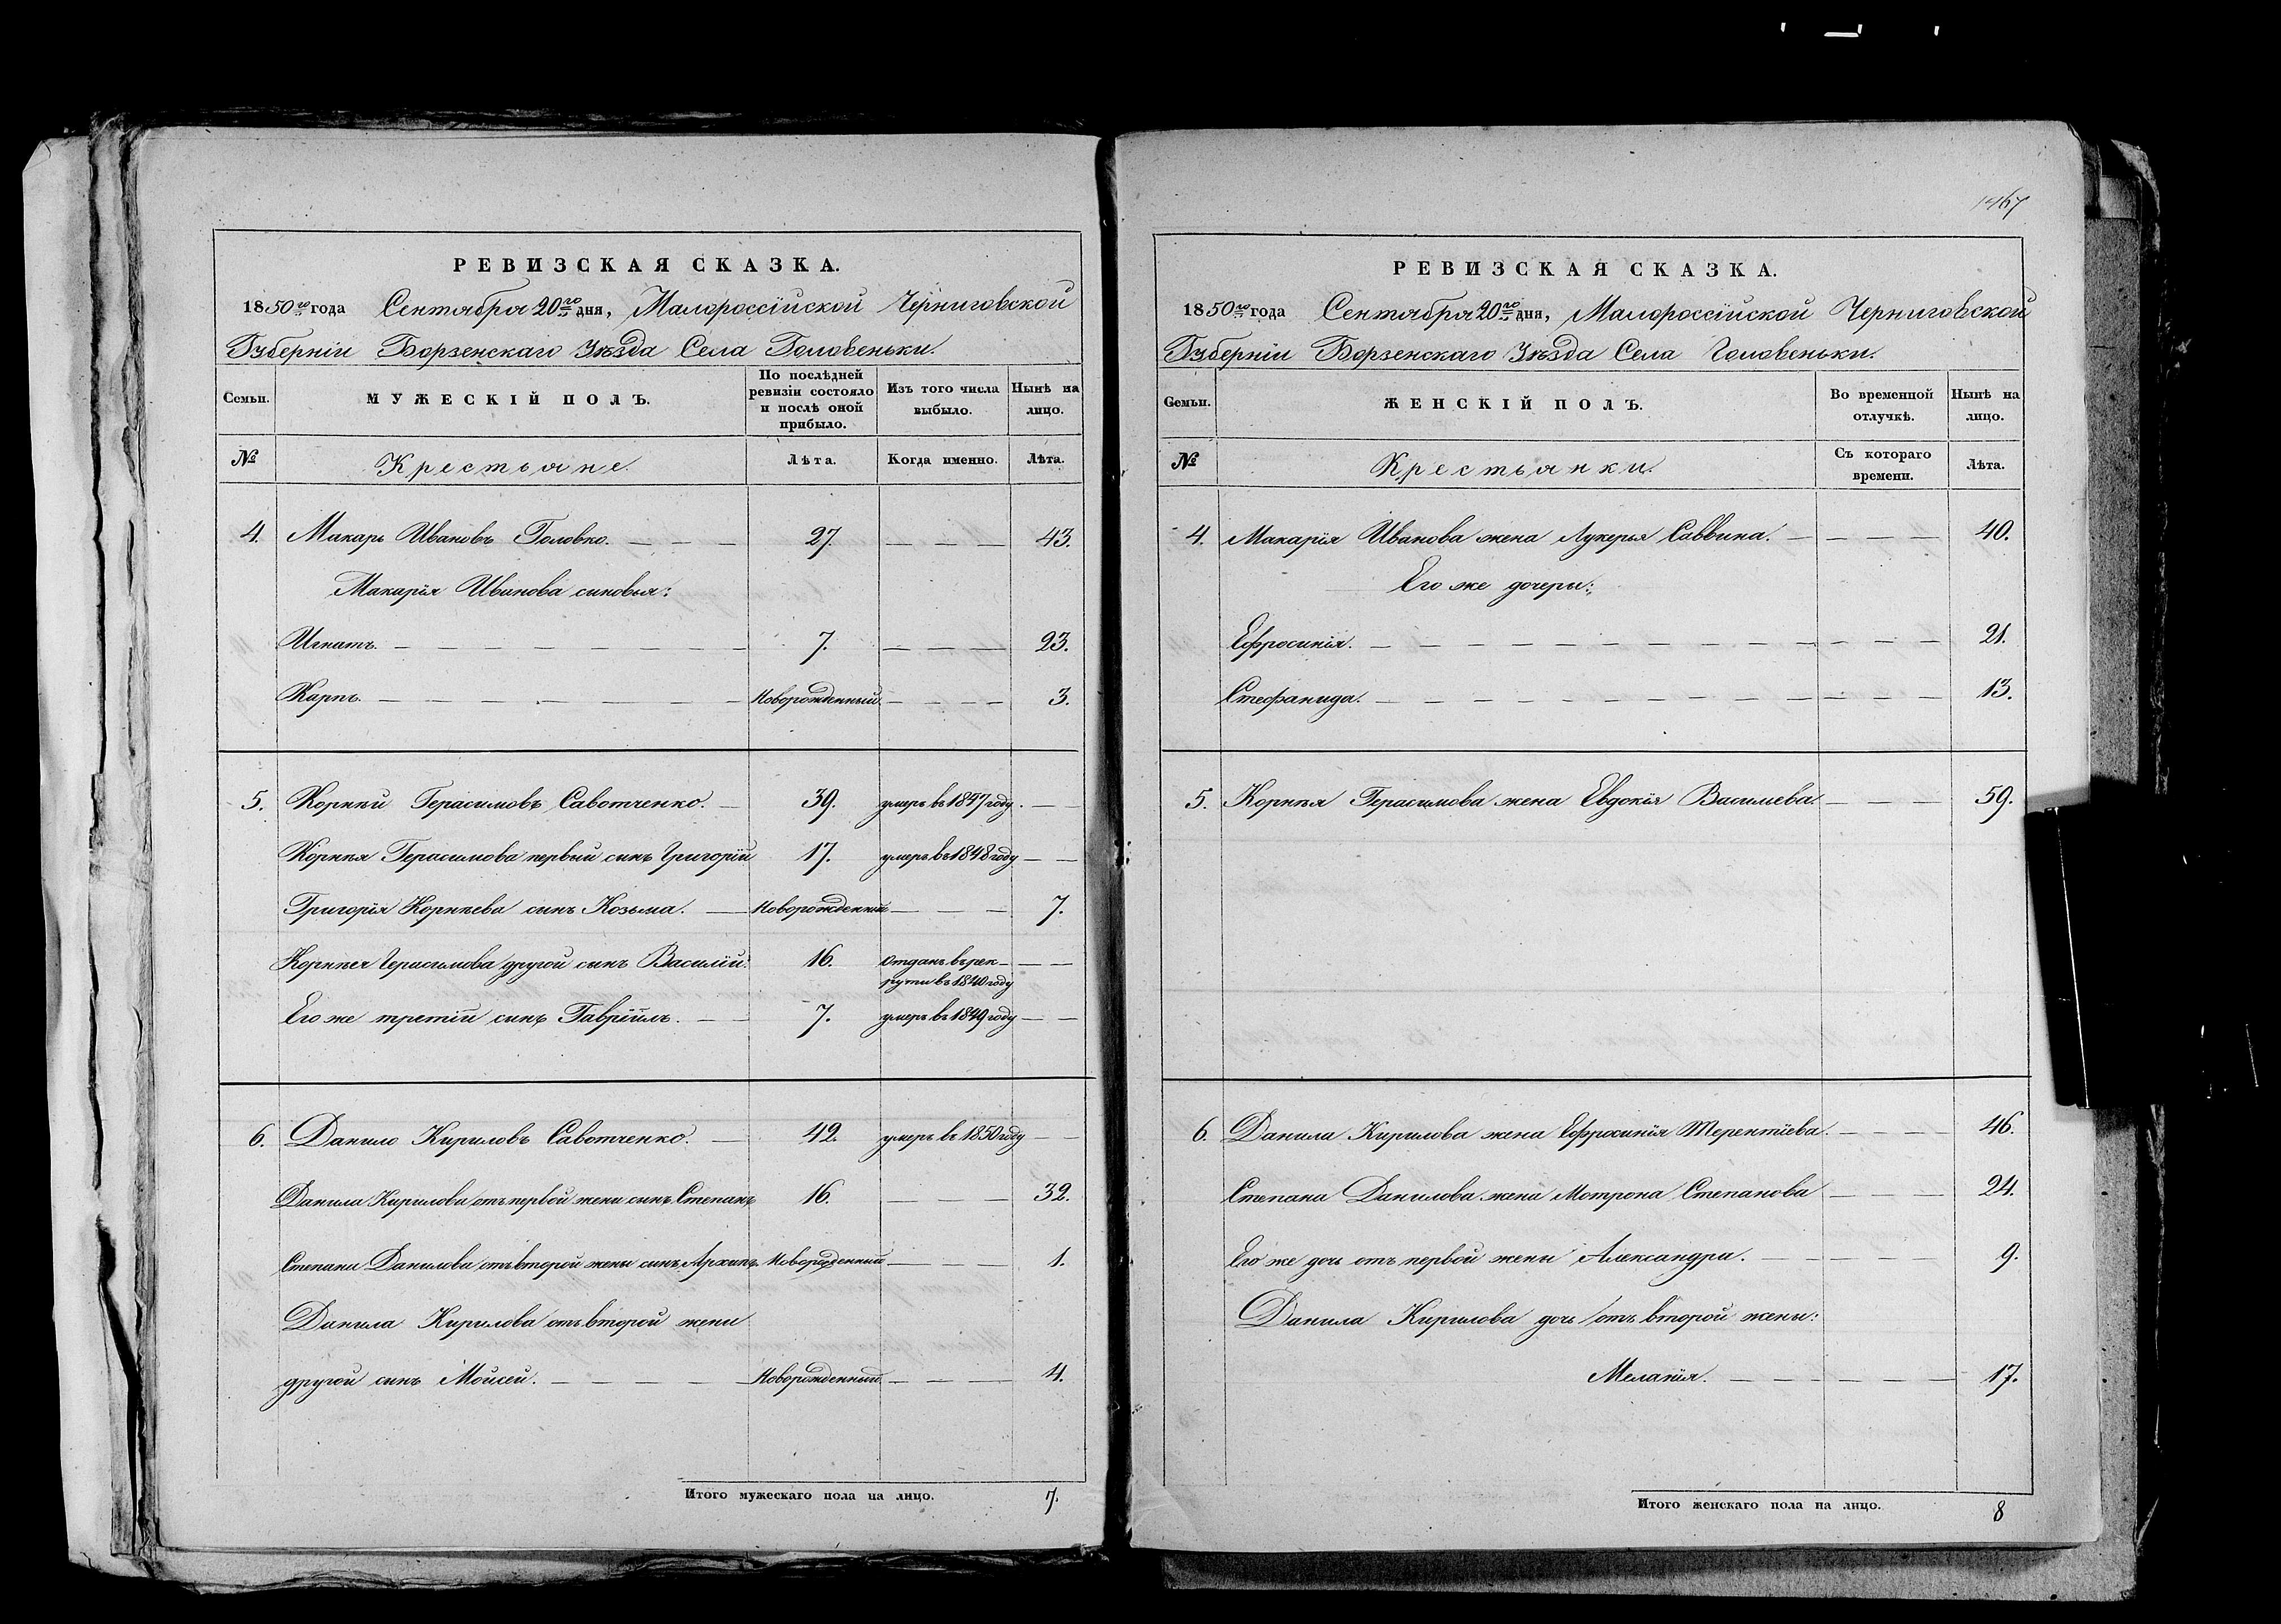 РЕВИЗСКАЯ СКАЗКА.
1850го года Сентября 20го дня, Малороссійской Черниговской
Губерніи Борзенскаго Уѣзда Села Головеньки.
Семьи. МУЖЕСКІЙ ПОЛЪ. По послѣдней ревизіи состояло и послѣ оной прибыло. Изъ того числа выбыло. Нынѣ на лицо.
№ Крестьяне. Лѣта. Когда именно. Лѣта.
4. Макаръ Ивановъ Головко. — — — 27. — — — 43.
Макарія Иванова сыновья:
Игнатъ. — — — 7. — — — 23.
Карпъ. — — — Новорожденный. — — — 3.
5. Корнѣй Герасимовъ Саботченко. — 39. умеръ въ 1847 году. — —
Корнѣя Герасимова первый сынъ Григорій 17. умеръ въ 1848 году — —
Григорія Корнѣева сынъ Козьма. — Новорожденный — — — 7.
Корнѣя Герасимова другой сынъ Василій. 16. отданъ въ рек- — —
руты въ 1840 году
Его же третій сынъ Гавріилъ. — — 7. умеръ въ 1849 году — —
6. Данило Кириловъ Саботченко. — 42. умеръ въ 1850 году — —
Данила Кирилова отъ первой жены сынъ Степанъ 16. — — — 32.
Степана Данилова отъ второй жены сынъ Архипъ. Новорожденный. — — — 1.
Данила Кирилова отъ второй жены
другой сынъ Мойсей. — — — Новорожденный. — — — 4.
Итого мужескаго пола на лицо. 7.
1467
РЕВИЗСКАЯ СКАЗКА.
1850го года Сентября 20го дня, Малороссійской Черниговской
Губерніи Борзенскаго Уѣзда Села Головеньки.
Семьи. ЖЕНСКІЙ ПОЛЪ. Во временной отлучкѣ. Нынѣ на лицо.
№ Крестьянки. Съ котораго времени. Лѣта.
4. Макарія Иванова жена Лукерья Саввина. — — — 40.
Его же дочеры:
Ефросинія. — — — 21.
Стефанида. — — — 13.
5. Корнѣя Герасимова жена Евдокія Васильева. — — — 59.
6. Данила Кирилова жена Ефросинія Терентіева. — — — 46.
Степана Данилова жена Мотрона Степанова — — — 24.
Его же дочь отъ первой жены Александра. — — — 9.
Данила Кирилова дочь отъ второй жены:
Меланія. — — — 17.
Итого женскаго пола на лицо. 8